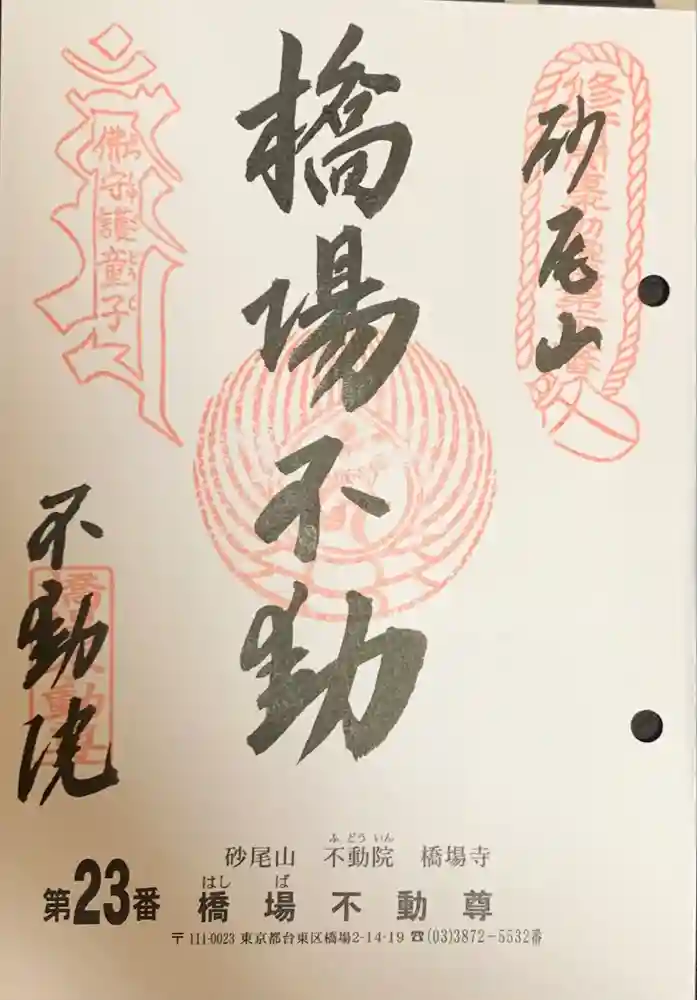 砂尾山
橋場不動
不動院
佛守護童子
砂尾山 不動院 橋場寺
ふどういん
第23番 橋場不動尊
はしば
〒111-0023 東京都台東区橋場2-14-19 ☎(03)3872-5532番